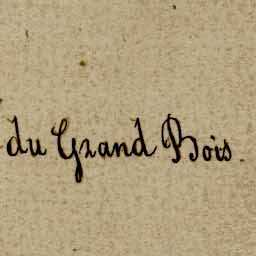 du Grand Bois.